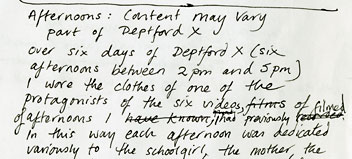 Afternoons: Content may vary
part of Deptford X
over six days of Deptford X (six
afternoons between 2pm and 5pm)
I wore the clothes of one of the
protagonists of the six videos, films of filmed
of afternoons I have known, I had previously
In this way each afternoon was dedicated
variously to the schoolgirl, the mother, the